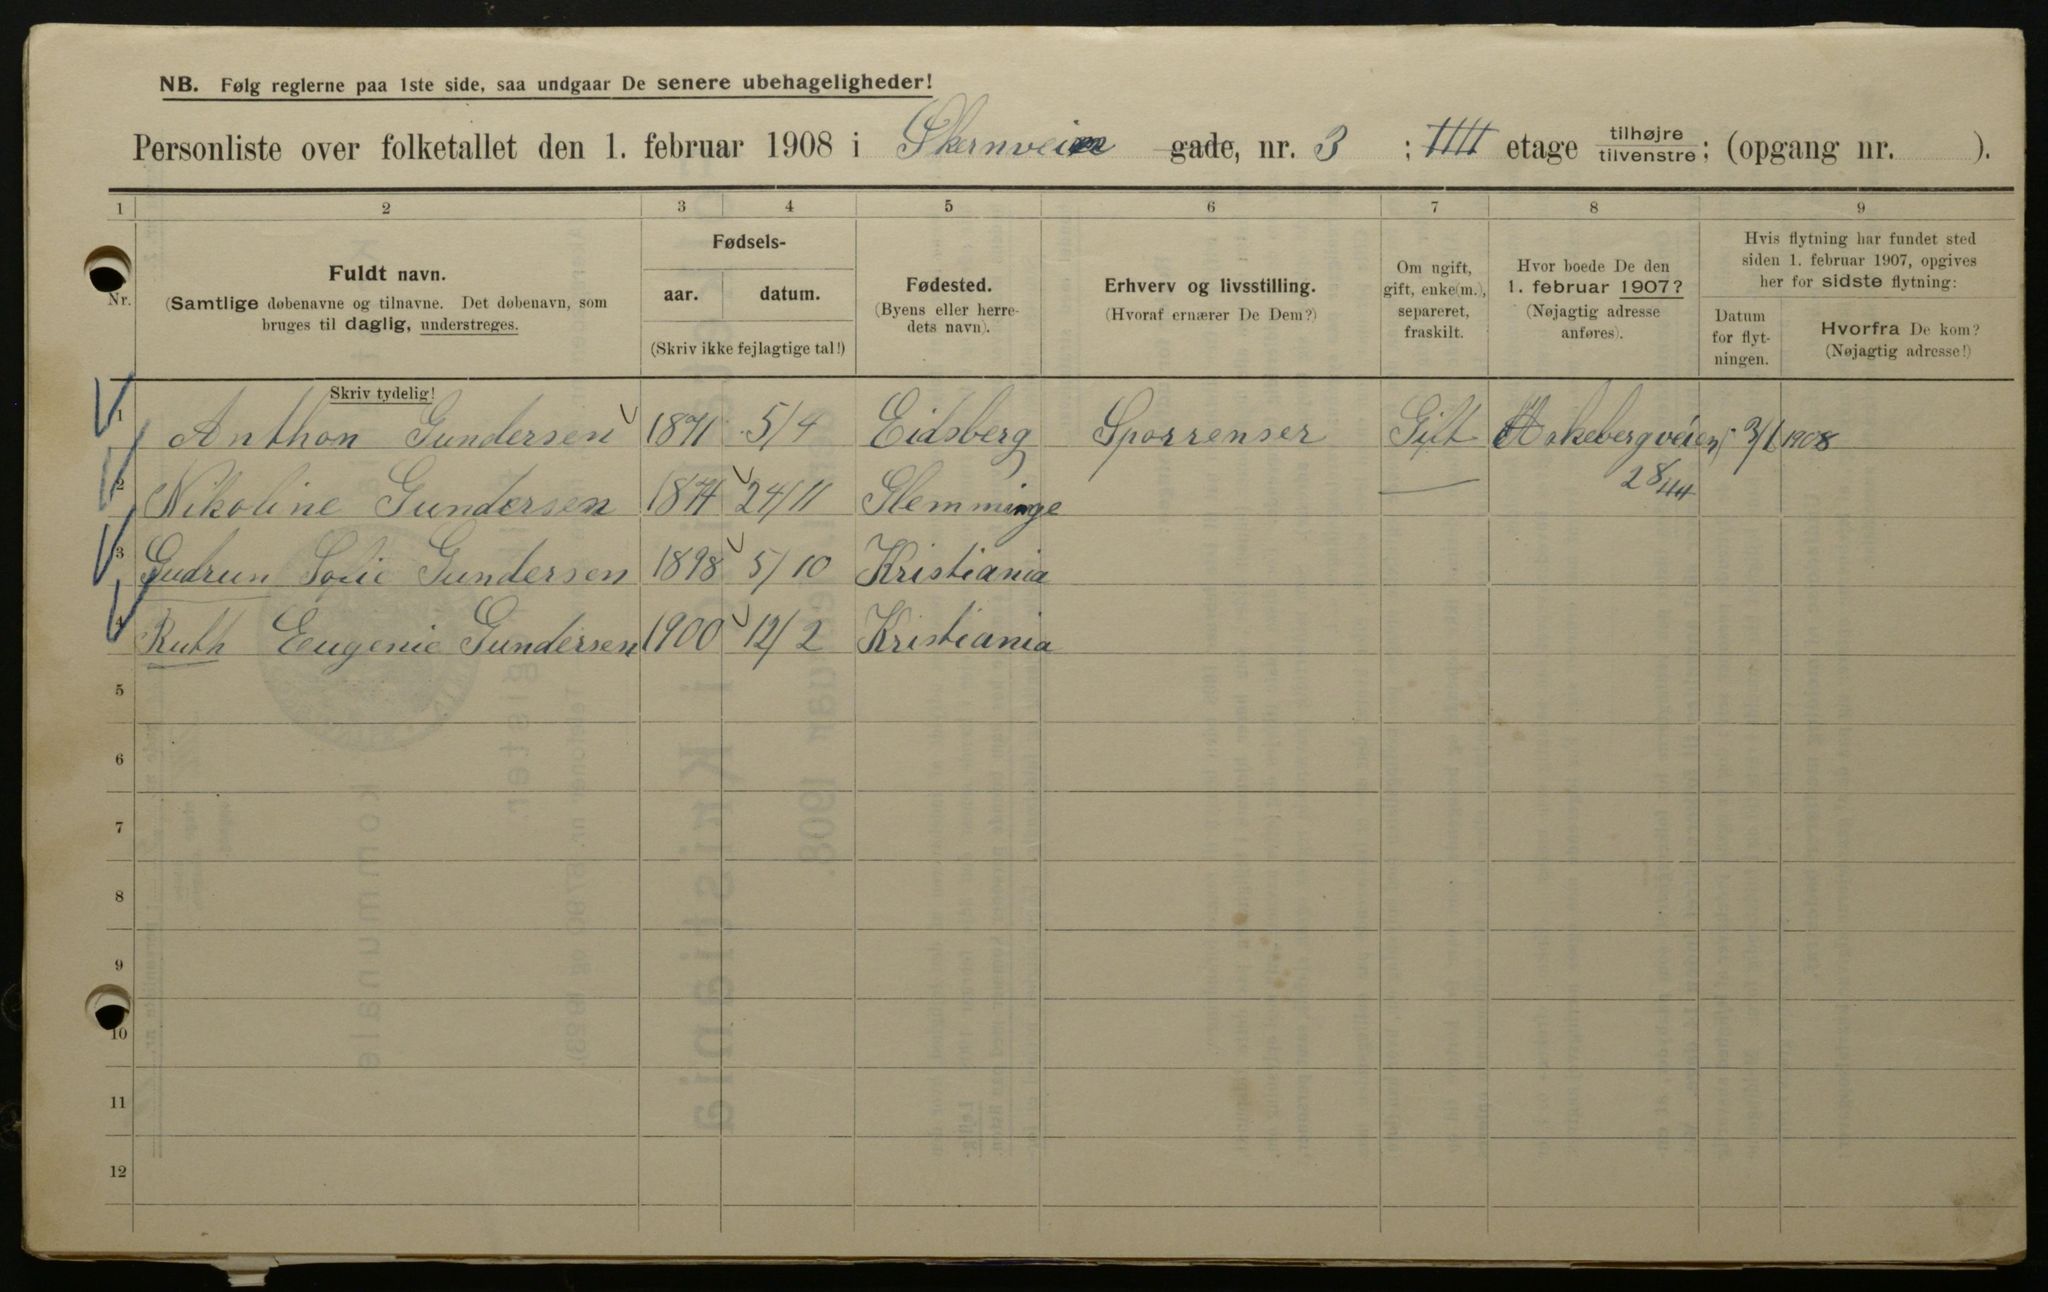 NB. Følg reglerne paa 1ste side, saa undgaar De senere ubehageligheder!
Personliste over folketallet den 1. februar 1908 i Skernveien gade, nr. 3 ; IIII etage tilhøjre tilvenstre; (opgang nr. ).
1 2 3 4 5 6 7 8 9
Nr.
Fuldt navn.
(Samtlige døbenavne og tilnavne. Det døbenavn, som
bruges til daglig, understreges.
Skriv tydelig!
Fødsels-
aar. datum.
(Skriv ikke fejlagtige tal!)
Fødested.
(Byens eller herre-
dets navn).
Erhverv og livsstilling.
(Hvoraf ernærer De Dem?)
Om ugift,
gift, enke(m.),
separeret,
fraskilt.
Hvor boede De den
1. februar 1907?
(Nøjagtig adresse
anføres).
Hvis flytning har fundet sted
siden 1. februar 1907, opgives
her for sidste flytning:
Datum
for flyt-
ningen.
Hvorfra De kom?
(Nøjagtig adresse!)
1 Anthon Gundersen 1871 5/4 Eidsberg Sporrenser Gift Aakebergveien 3/1 1908
28/44
2 Nikoline Gundersen 1871 24/11 Slemminge —
3 Gudrun Sofie Gundersen 1898 5/10 Kristiania
4 Ruth Eugenie Gundersen 1900 12/2 Kristiania
5
6
7
8
9
10
11
12